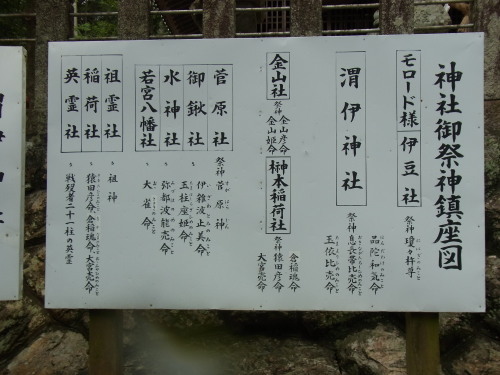 神社御祭神鎮座図
モロード様
伊豆社
祭神 瓊々杵尊
渭伊神社
祭神
品陀和気命
息長帯比売命
玉依比売命
金山社
祭神
金山彦命
金山姫命
榊本稲荷社
祭神
倉稲魂命
猿田彦命
大宮売命
菅原社
祭神 菅原神
御鍬社
伊雑波止美命
玉柱屋姫命
水神社
弥都波能売命
若宮八幡社
大雀命
祖霊社
祖神
稲荷社
猿田彦命 倉稲魂命 大宮売命
英霊社
戦歿者二十一柱の英霊